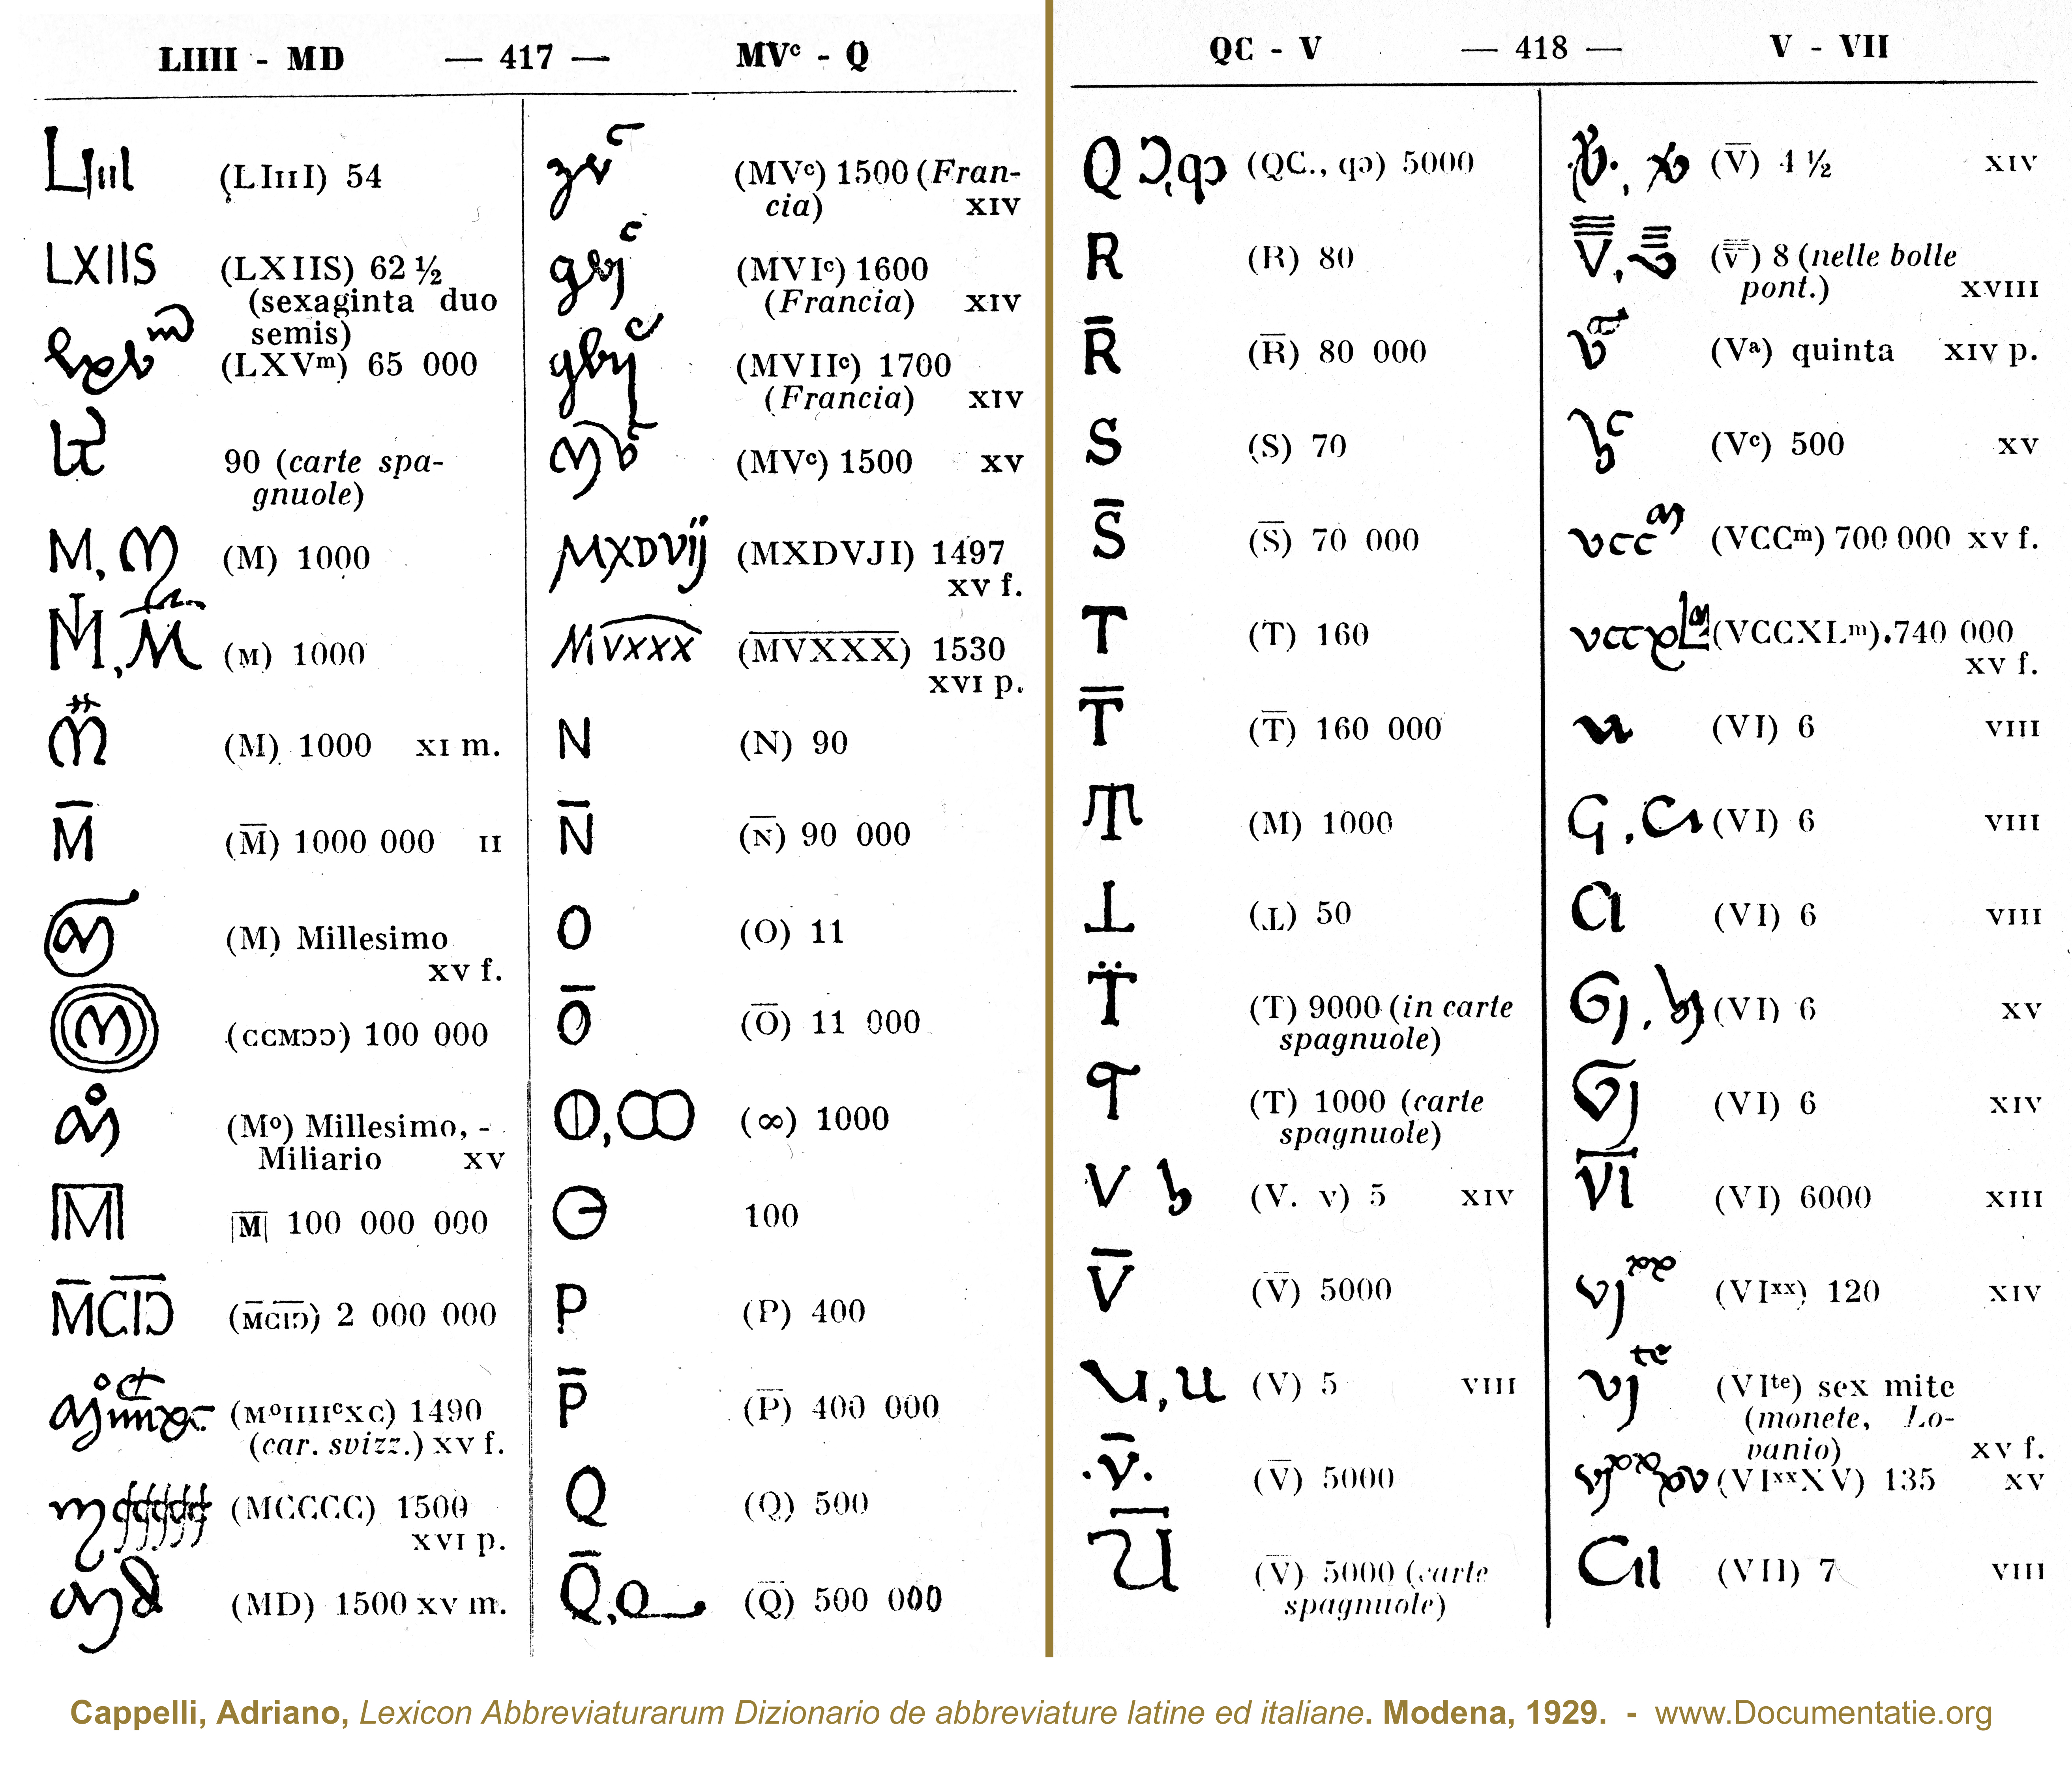 LIIII - MD — 417 — MVᶜ - Q
(LIIII) 54
LXIIS (LXIIS) 62 ½
(sexaginta duo
semis)
(LXVᵐ) 65 000
90 (carte spa-
gnuole)
M, M (M) 1000
M, M (M) 1000
(M) 1000 XI m.
M̅ (M̅) 1000 000 II
(M) Millesimo
XV f.
(CCMƆƆ) 100 000
(Mᵒ) Millesimo, -
Miliario XV
|M̅| |M̅| 100 000 000
M̅C̅I̅Ɔ̅ (M̅C̅I̅Ɔ̅) 2 000 000
(MᵒIIIIᶜXC) 1490
(car. svizz.) XV f.
(MCCCC) 1500
XVI p.
(MD) 1500 XV m.
(MVᶜ) 1500 (Fran-
cia) XIV
(MVIᶜ) 1600
(Francia) XIV
(MVIIᶜ) 1700
(Francia) XIV
(MVᶜ) 1500 XV
MXDVIJ (MXDVJI) 1497
XV f.
MVXXX (M̅V̅X̅X̅X̅) 1530
XVI p.
N (N) 90
N̅ (N̅) 90 000
O (O) 11
O̅ (O̅) 11 000
(∞) 1000
100
P (P) 400
P̅ (P̅) 400 000
Q (Q) 500
Q̅, Q (Q̅) 500 000
QC - V — 418 — V - VII
Q Ɔ, qɔ (QC., qɔ) 5000
R (R) 80
R̅ (R̅) 80 000
S (S) 70
S̅ (S̅) 70 000
T (T) 160
T̅ (T̅) 160 000
(M) 1000
⊥ (⊥) 50
T̈ (T) 9000 (in carte
spagnuole)
(T) 1000 (carte
spagnuole)
V (V. v) 5 XIV
V̅ (V̅) 5000
(V) 5 VIII
.v̅. (V̅) 5000
(V̅) 5000 (carte
spagnuole)
(V̅) 4 ½ XIV
(V̅) 8 (nelle bolle
pont.) XVIII
(Vᵃ) quinta XIV p.
(Vᶜ) 500 XV
vccᵐ (VCCᵐ) 700 000 XV f.
(VCCXLᵐ).740 000
XV f.
(VI) 6 VIII
(VI) 6 VIII
(VI) 6 VIII
(VI) 6 XV
(VI) 6 XIV
V̅I̅ (VI) 6000 XIII
(VIˣˣ) 120 XIV
vjᵗᵉ (VIᵗᵉ) sex mite
(monete, Lo-
vanio) XV f.
(VIˣˣXV) 135 XV
(VII) 7 VIII
Cappelli, Adriano, Lexicon Abbreviaturarum Dizionario de abbreviature latine ed italiane. Modena, 1929. - www.Documentatie.org